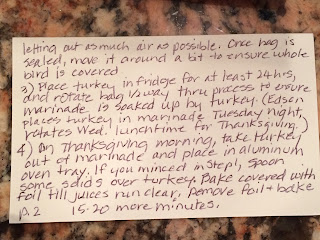 letting out as much air as possible. Once bag is
sealed, move it around a bit to ensure whole
bird is covered.
3) Place turkey in fridge for at least 24 hrs,
and rotate bag 1/2 way thru process to ensure
marinade is soaked up by turkey. (Edson
places turkey in marinade Tuesday night,
rotates Wed. lunchtime for Thanksgiving.)
4) On Thanksgiving morning, take turkey
out of marinade and place in aluminum
oven tray. If you minced in step 1, spoon
some solids over turkey. Bake covered with
foil till juices run clear, remove foil + bake
p.2 15-20 more minutes.